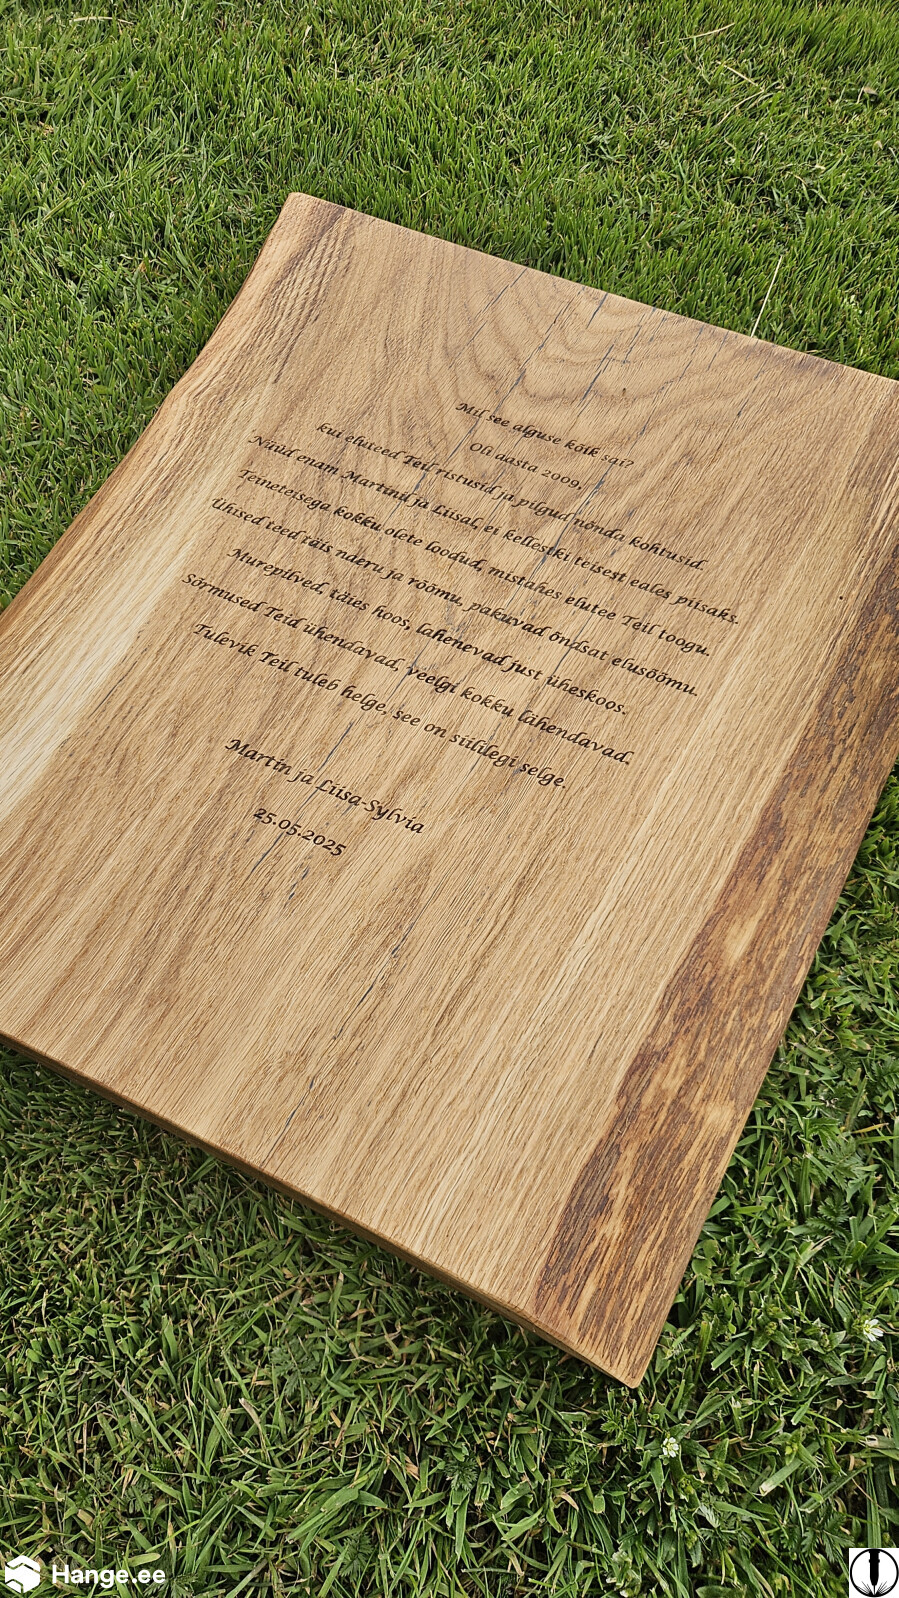 Mil see alguse kõik sai?
Oli aasta 2009,
kui eluteed Teil ristusid ja pilgud nõnda kohtusid.
Nüüd enam Martinil ja Liisal, ei kellestki teisest eales piisaks.
Teineteisega kokku olete loodud, mistahes elutee Teil toogu.
Ühised teed täis naeru ja rõõmu, pakuvad õndsat elusõõmu.
Murepilved, täies hoos, lahenevad just üheskoos.
Sõrmused Teid ühendavad, veelgi kokku lähendavad.
Tulevik Teil tuleb helge, see on siililegi selge.
Martin ja Liisa-Sylvia
25.05.2025
Hange.ee